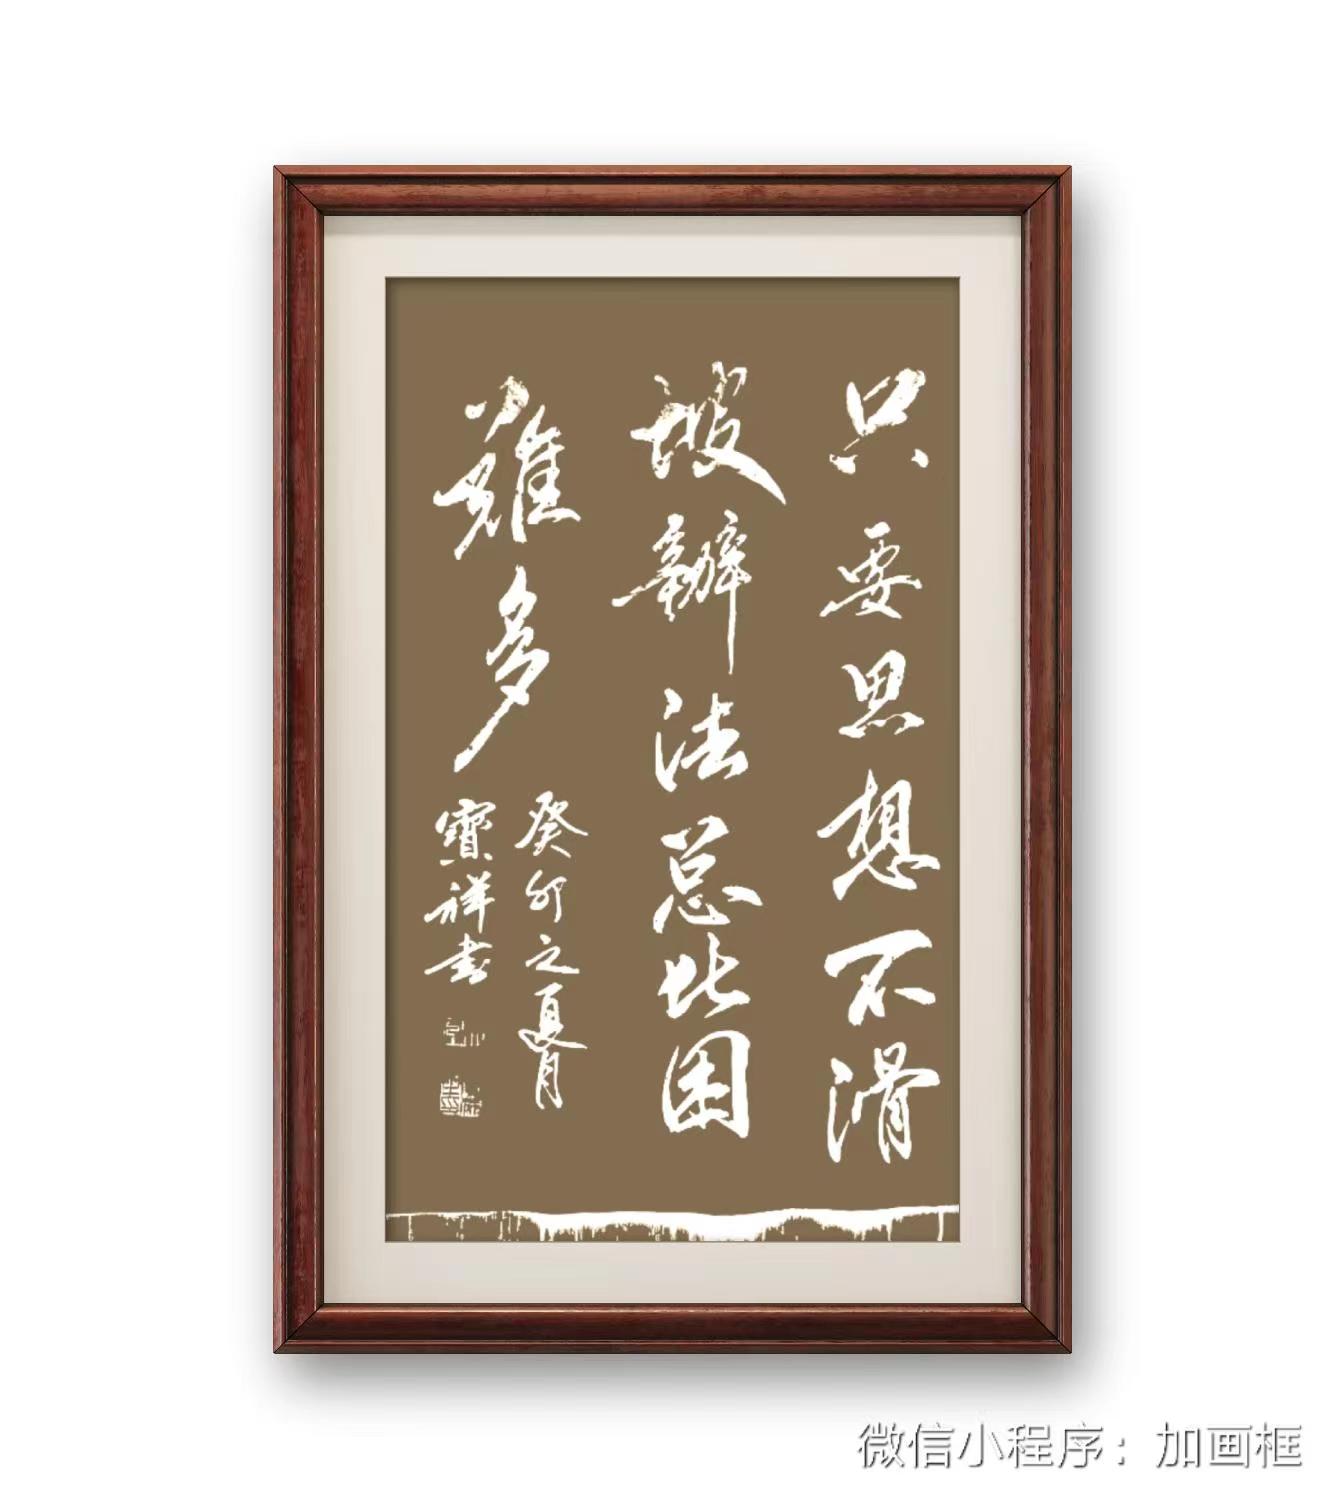 只要思想不滑
坡辦法总比困
難多
癸卯之夏月
寶祥书
微信小程序：加画框